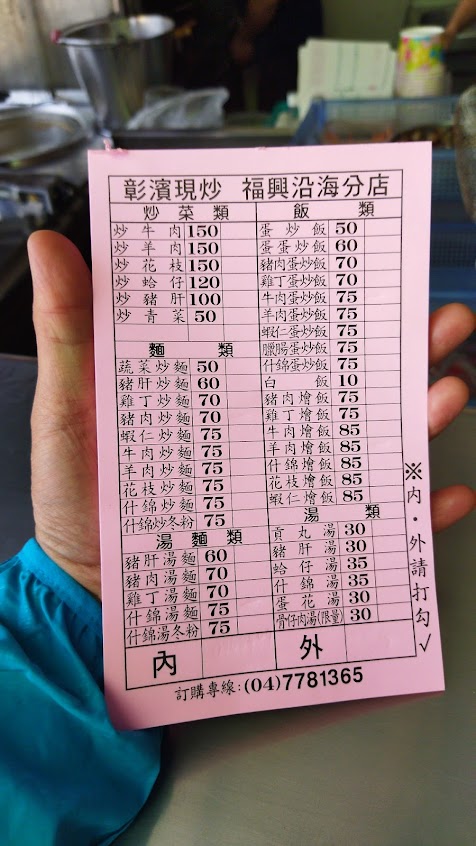 彰濱現炒 福興沿海分店
炒菜類
炒牛肉 150
炒羊肉 150
炒花枝 150
炒蛤仔 120
炒豬肝 100
炒青菜 50
麵類
蔬菜炒麵 50
豬肝炒麵 60
雞丁炒麵 70
豬肉炒麵 70
蝦仁炒麵 75
牛肉炒麵 75
羊肉炒麵 75
花枝炒麵 75
什錦炒麵 75
什錦炒冬粉 75
湯麵類
豬肝湯麵 60
豬肉湯麵 70
雞丁湯麵 70
什錦湯麵 75
什錦湯冬粉 75
飯類
蛋炒飯 50
蛋蛋炒飯 60
豬肉蛋炒飯 70
雞丁蛋炒飯 70
牛肉蛋炒飯 75
羊肉蛋炒飯 75
蝦仁蛋炒飯 75
臘腸蛋炒飯 75
什錦蛋炒飯 75
白飯 10
豬肉燴飯 75
雞丁燴飯 75
牛肉燴飯 85
羊肉燴飯 85
什錦燴飯 85
花枝燴飯 85
蝦仁燴飯 85
湯類
貢丸湯 30
豬肝湯 30
蛤仔湯 35
什錦湯 35
蛋花湯 30
骨仔肉湯(限量) 30
內 外
※內・外請打勾✓
訂購專線:(04)7781365